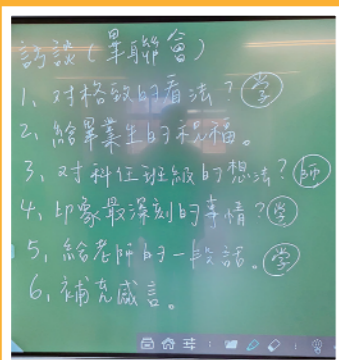 訪談(畢聯會)
1、对格致的看法?学
2、給畢業生的祝福。
3、対科任班級的想法?師
4、印象最深刻的事情?学
5、給老師的一段話。学
6、補充感言。